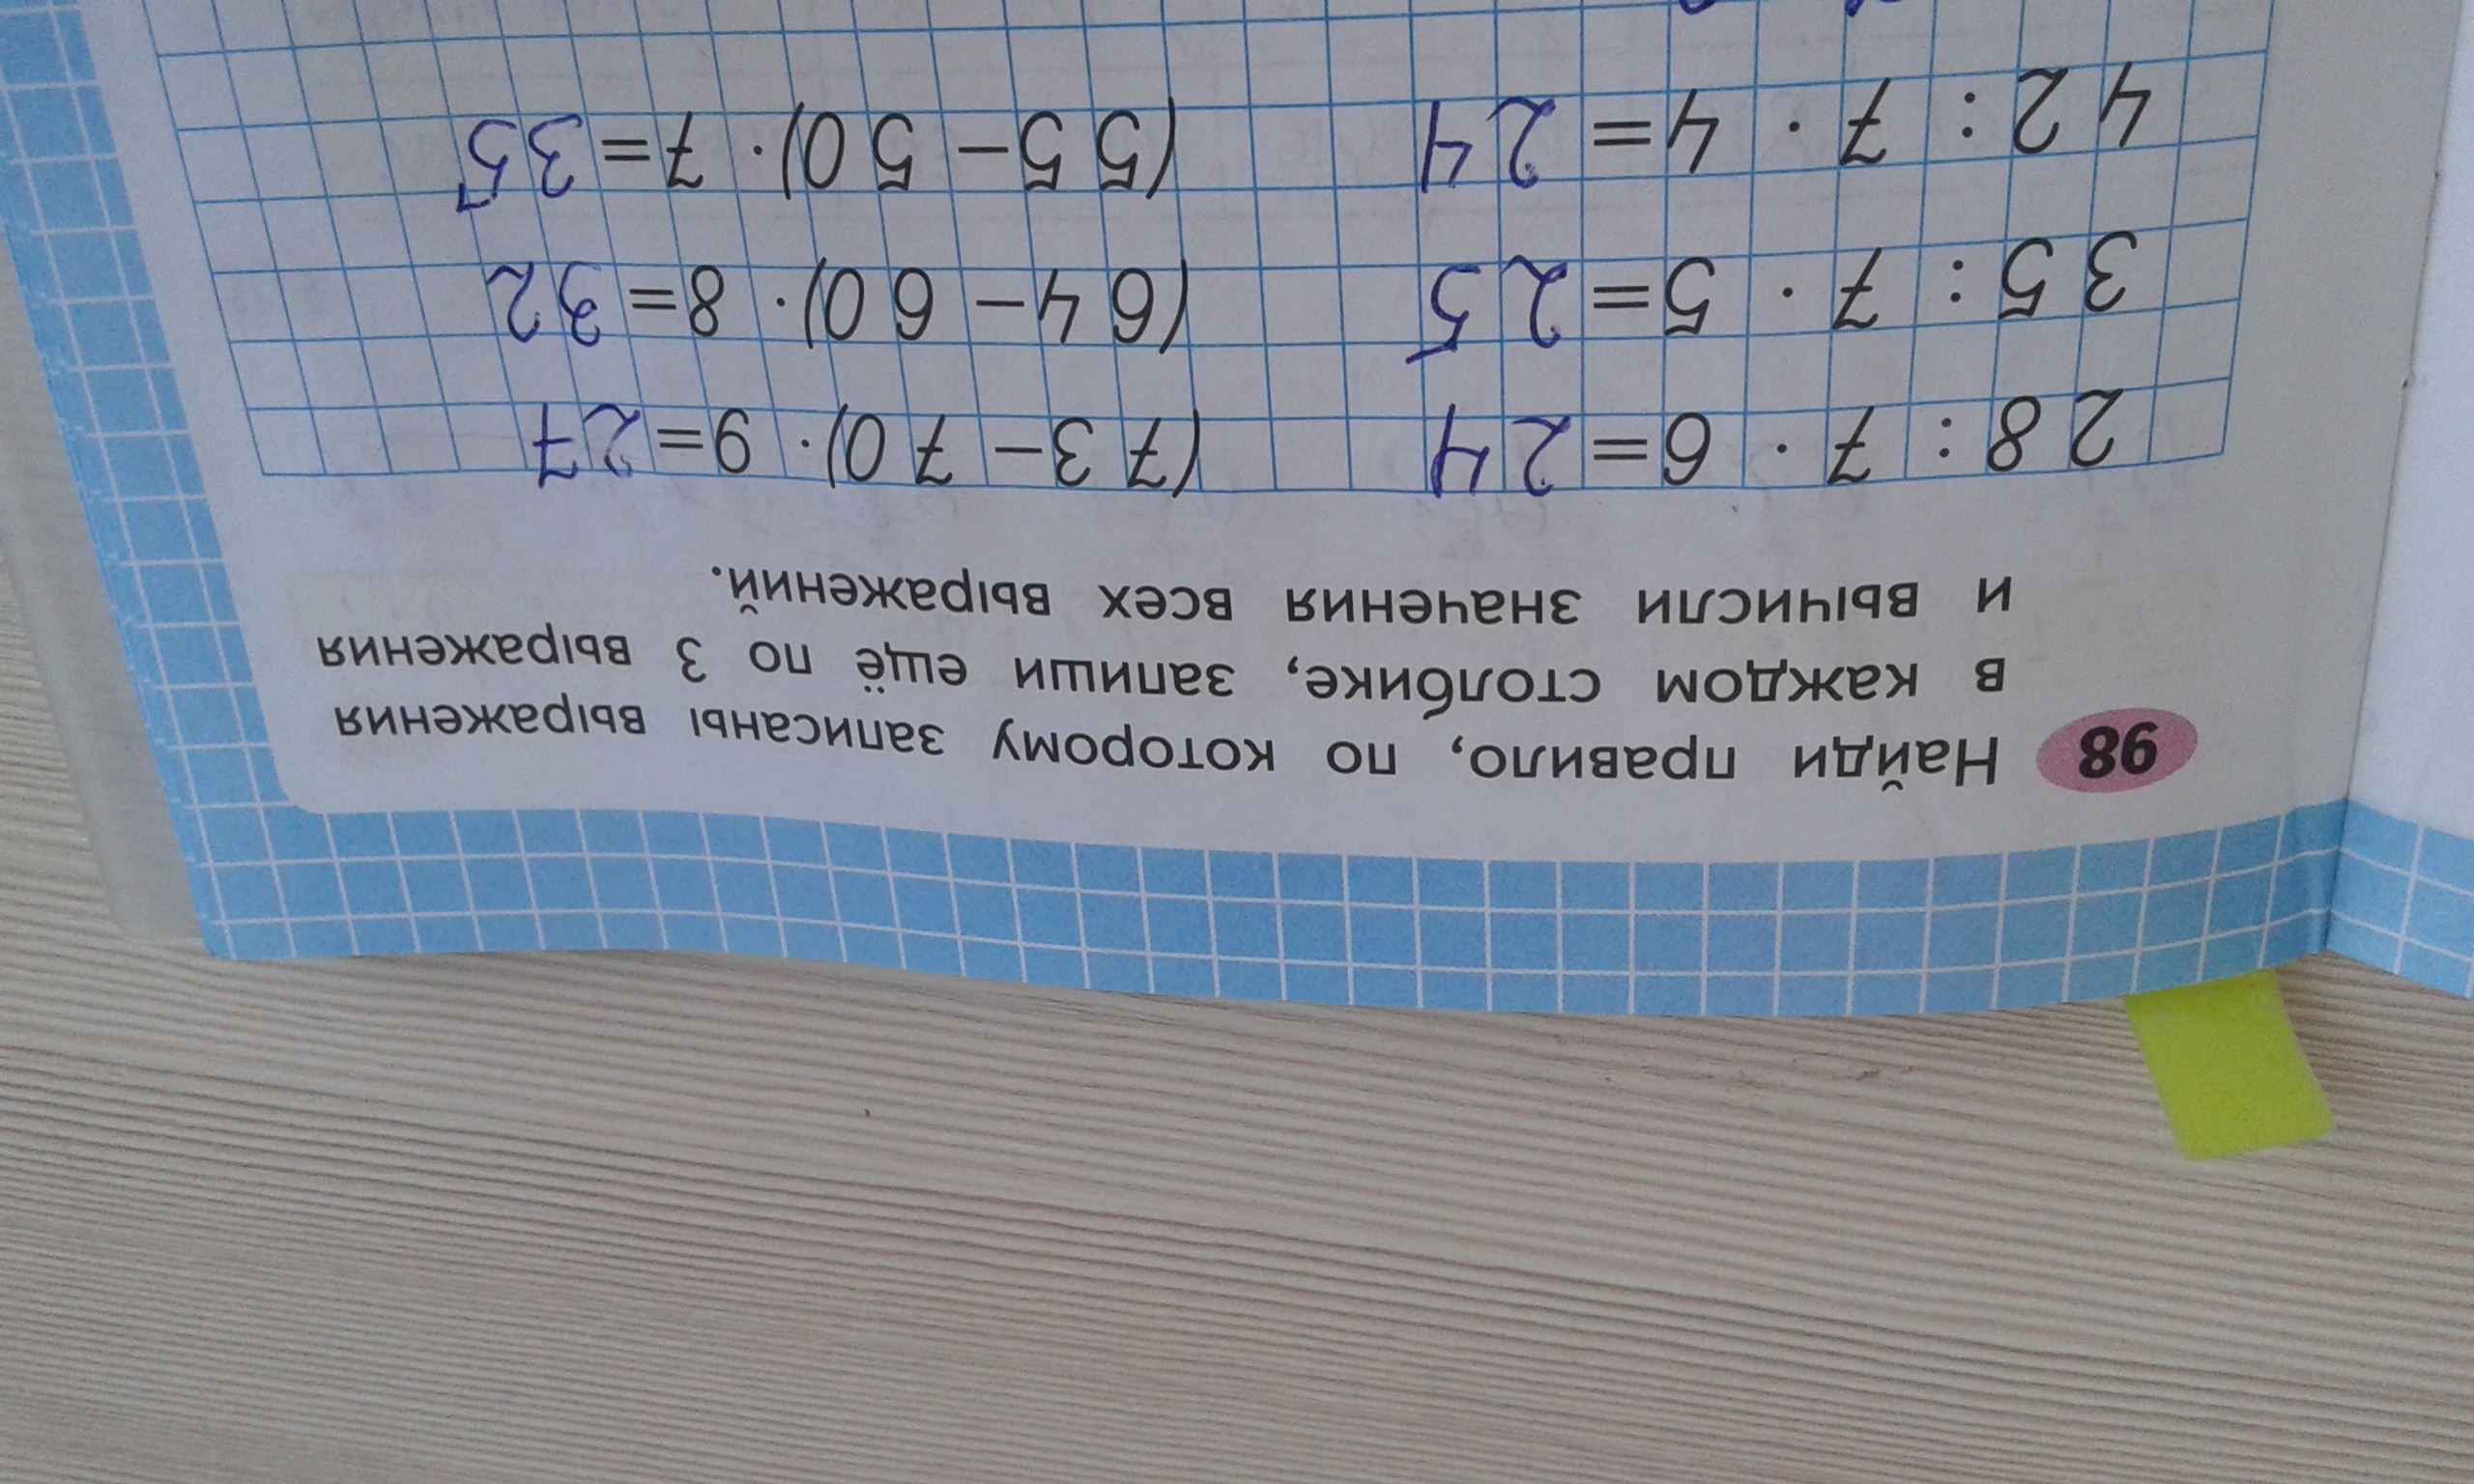 98 Найди правило, по которому записаны выражения
в каждом столбике, запиши ещё по 3 выражения
и вычисли значения всех выражений.
28 : 7 · 6 = 24 (73 − 70) · 9 = 27
35 : 7 · 5 = 25 (64 − 60) · 8 = 32
42 : 7 · 4 = 24 (55 − 50) · 7 = 35